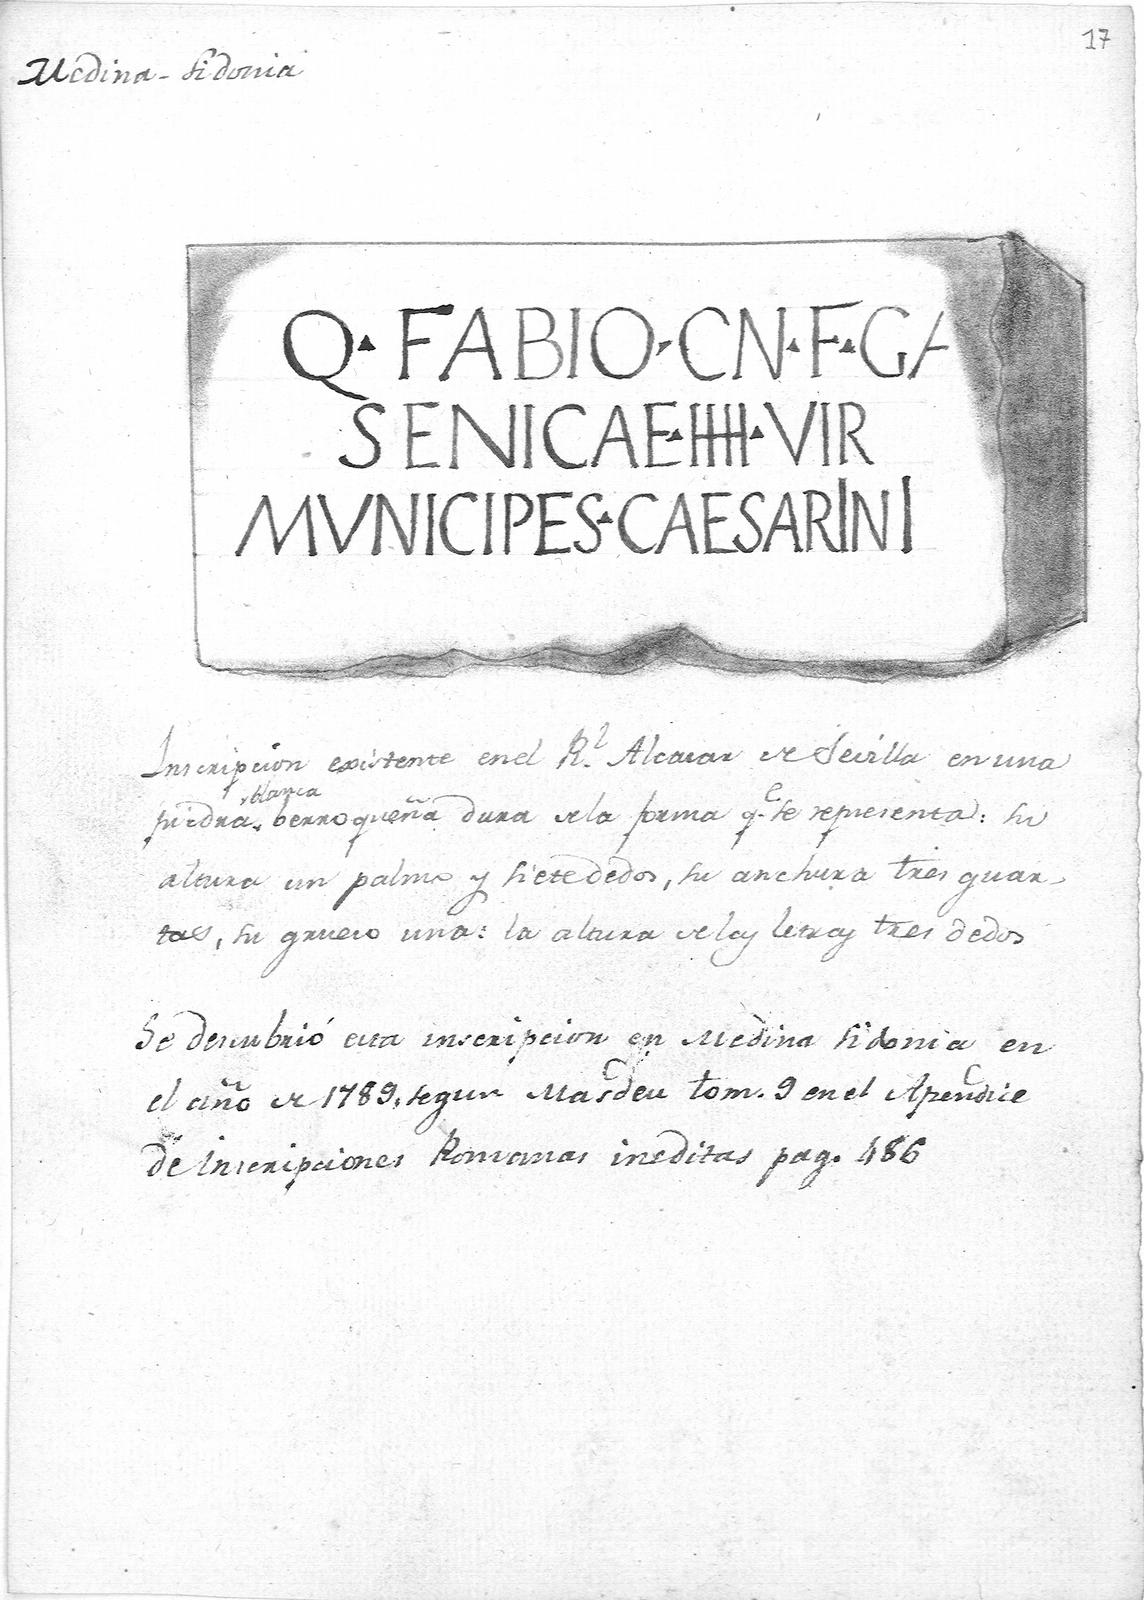 17
Medina-Sidonia
Q▴FABIO▴CN▴F▴GA
SENICAE▴IIII▴VIR
MVNICIPES▴CAESARINI
Inscripcion existente en el R.l Alcazar de Sevilla en una
blanca
piedra, berroqueña dura de la forma q.e se representa: su
altura un palmo y siete dedos, su anchura tres quar-
tas, su grueso una: la altura de las letras tres dedos
Se descubrió esta inscripcion en Medina Sidonia en
el año de 1789, segun Masdeu tom. 9 en el Apendice
de Inscripciones Romanas ineditas pag. 486